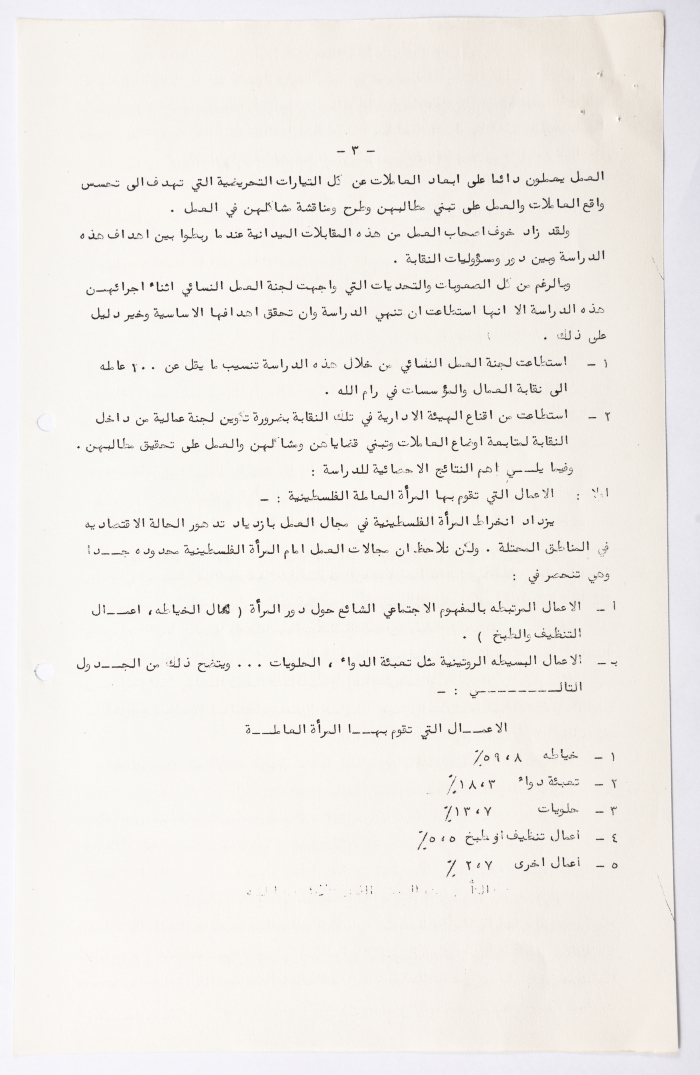 - ٣ -
العمل يعملون دائما على ابعاد العاملات عن كل التيارات التحريضية التي تهدف الى تحسس
واقع العاملات والعمل على تبني مطالبهن وطرح ومناقشة مشاكلهن في العمل .
ولقد زاد خوف اصحاب العمل من هذه المقابلات الميدانية عندما ربطوا بين اهداف هذه
الدراسة وبين دور ومسؤوليات النقابة .
وبالرغم من كل الصعوبات والتحديات التي واجهت لجنة العمل النسائي اثناء اجرائهـن
هذه الدراسة الا انها استطاعت ان تنهي الدراسة وان تحقق اهدافها الاساسية وخير دليل
على ذلك .
١ - استطاعت لجنة العمل النسائي من خلال هذه الدراسة تنسيب ما يقل عن ٢٠٠ عامله
الى نقابة العمال والمؤسسات في رام الله .
٢ - استطاعت من اقناع الهيئة الادارية في تلك النقابة بضرورة تكوين لجنة عمالية من داخل
النقابة لمتابعة اوضاع العاملات وتبني قضاياهن ومشاكلهن والعمل على تحقيق مطالبهن .
وفيما يلـــي اهم النتائج الاحصائية للدراسة :
اولا : الاعمال التي تقوم بها المرأة العاملة الفلسطينية : -
يزداد انخراط المرأة الفلسطينية في مجال العمل بازدياد تدهور الحالة الاقتصاديه
في المناطق المحتلة . ولكن نلاحظ ان مجالات العمل امام المرأة الفلسطينية محدوده جـــدا
وهي تنحصر في :
أ - الاعمال المرتبطه بالمفهوم الاجتماعي الشائع حول دور المرأة ( الخياطه ، اعمــال
التنظيف والطبخ ) .
بـ - الاعمال البسيطه الروتينية مثل تعبئة الدواء ، الحلويات ... ويتضح ذلك من الجــدول
التالـــــــــي : -
الاعمــال التي تقوم بهــا المرأة العاملــة
١ - خياطه ٥٩،٨٪
٢ - تعبئة دواء ١٨،٣٪
٣ - حلويات ١٣،٧٪
٤ - اعمال تنظيف او طبخ ٥،٥٪
٥ - اعمال اخرى ٢،٧٪